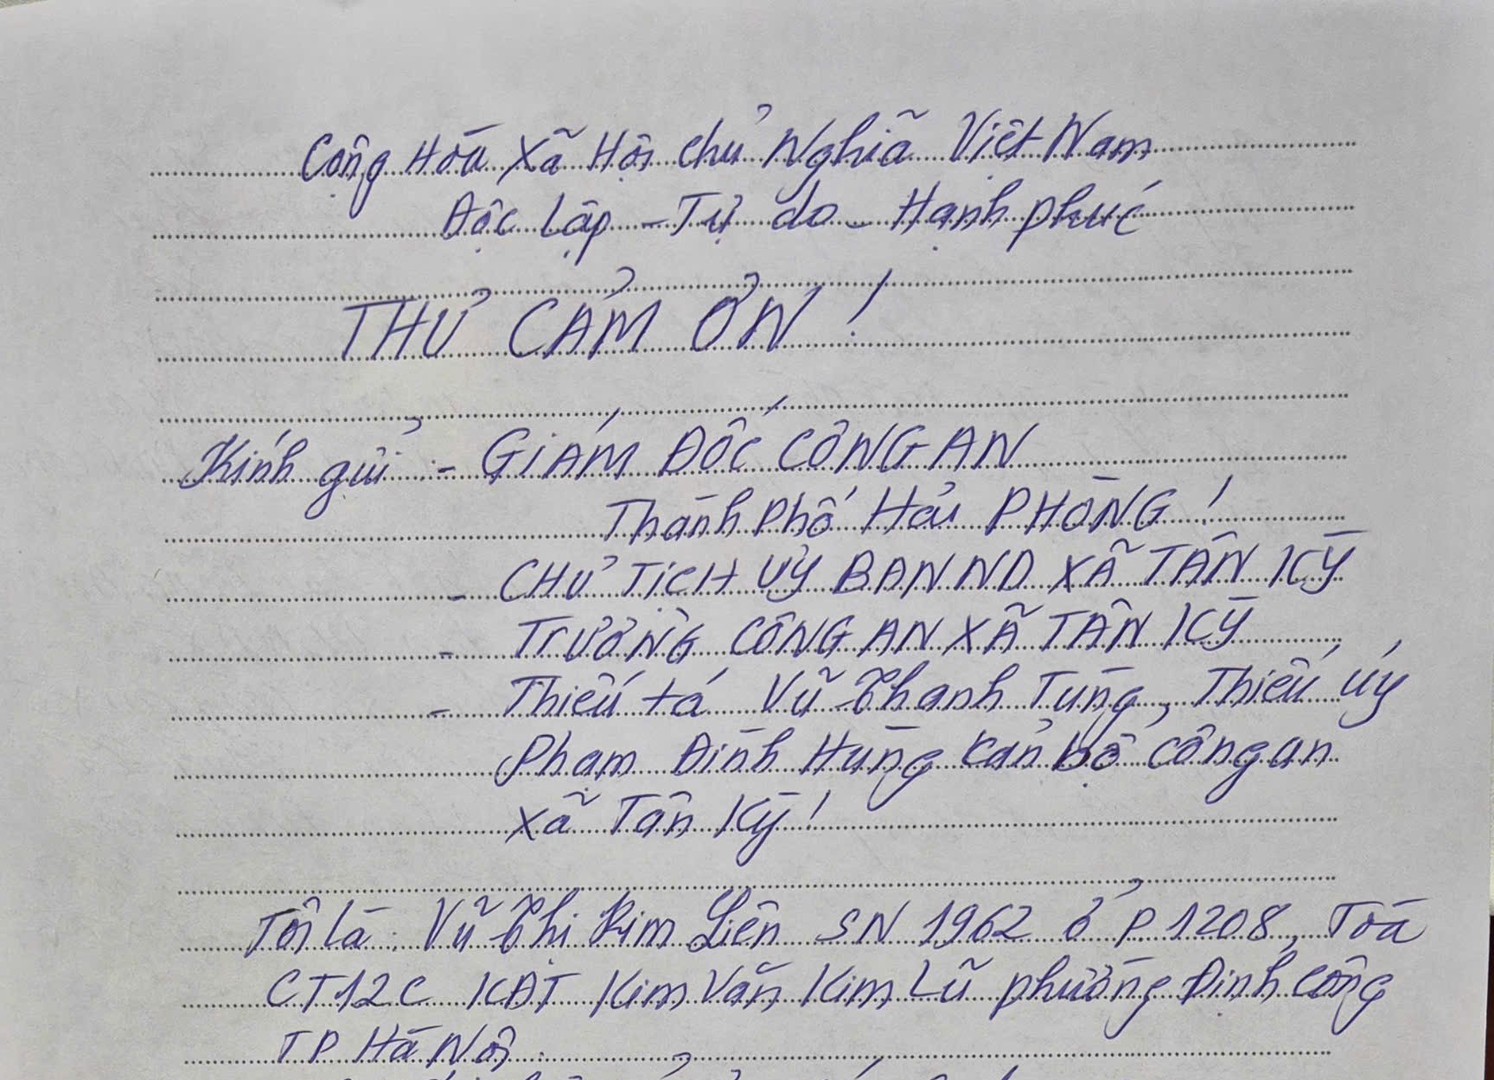 Cộng Hòa Xã Hội Chủ Nghĩa Việt Nam
Độc Lập - Tự do - Hạnh phúc
THƯ CẢM ƠN !
Kính gửi : - GIÁM ĐỐC CÔNG AN
Thành Phố Hải PHÒNG !
- CHỦ TỊCH UỶ BAN ND XÃ TÂN KỲ
- TRƯỞNG CÔNG AN XÃ TÂN KỲ
- Thiếu tá Vũ Thanh Tùng, Thiếu úy
Phạm Đình Hùng cán bộ công an
xã Tân Kỳ !
Tôi là : Vũ Thị Kim Liên SN 1962 ở P 1208, Toà
CT12C KĐT Kim Văn Kim Lũ phường Định Công
TP Hà Nội.